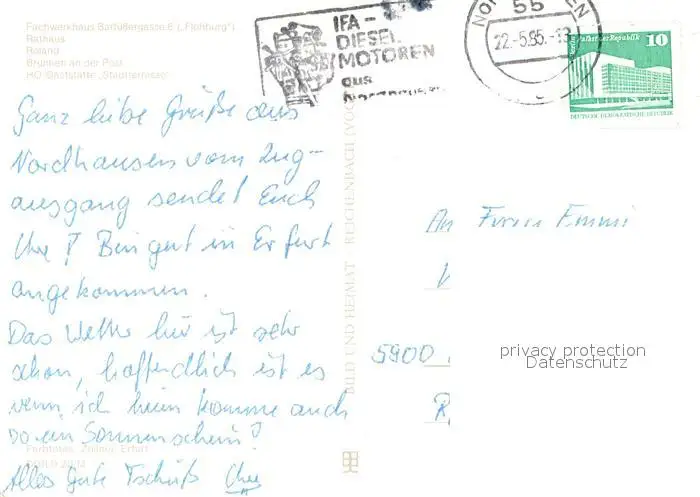 Fachwerkhaus Barfüßergasse 6 („Flohburg“)
Rathaus
Roland
Brunnen an der Post
HO Gaststätte „Stadtterrasse“
IFA-
DIESEL
MOTOREN
aus
55
22.-5.85.-13
Palast der Republik 10
DEUTSCHE DEMOKRATISCHE REPUBLIK
Ganz liebe Grüße aus
Nordhausen vom Zug-
ausgang sendet Euch
Uwe! Bin gut in Erfurt
angekommen.
Das Wetter hier ist sehr
schön, hoffendlich ist es
wenn ich heim komme auch
so ein Sonnenschein?
Alles Gute Tschüß Uwe
BILD UND HEIMAT REICHENBACH (VOG
An Firma Emmi
5900
R
privacy protection
Datenschutz